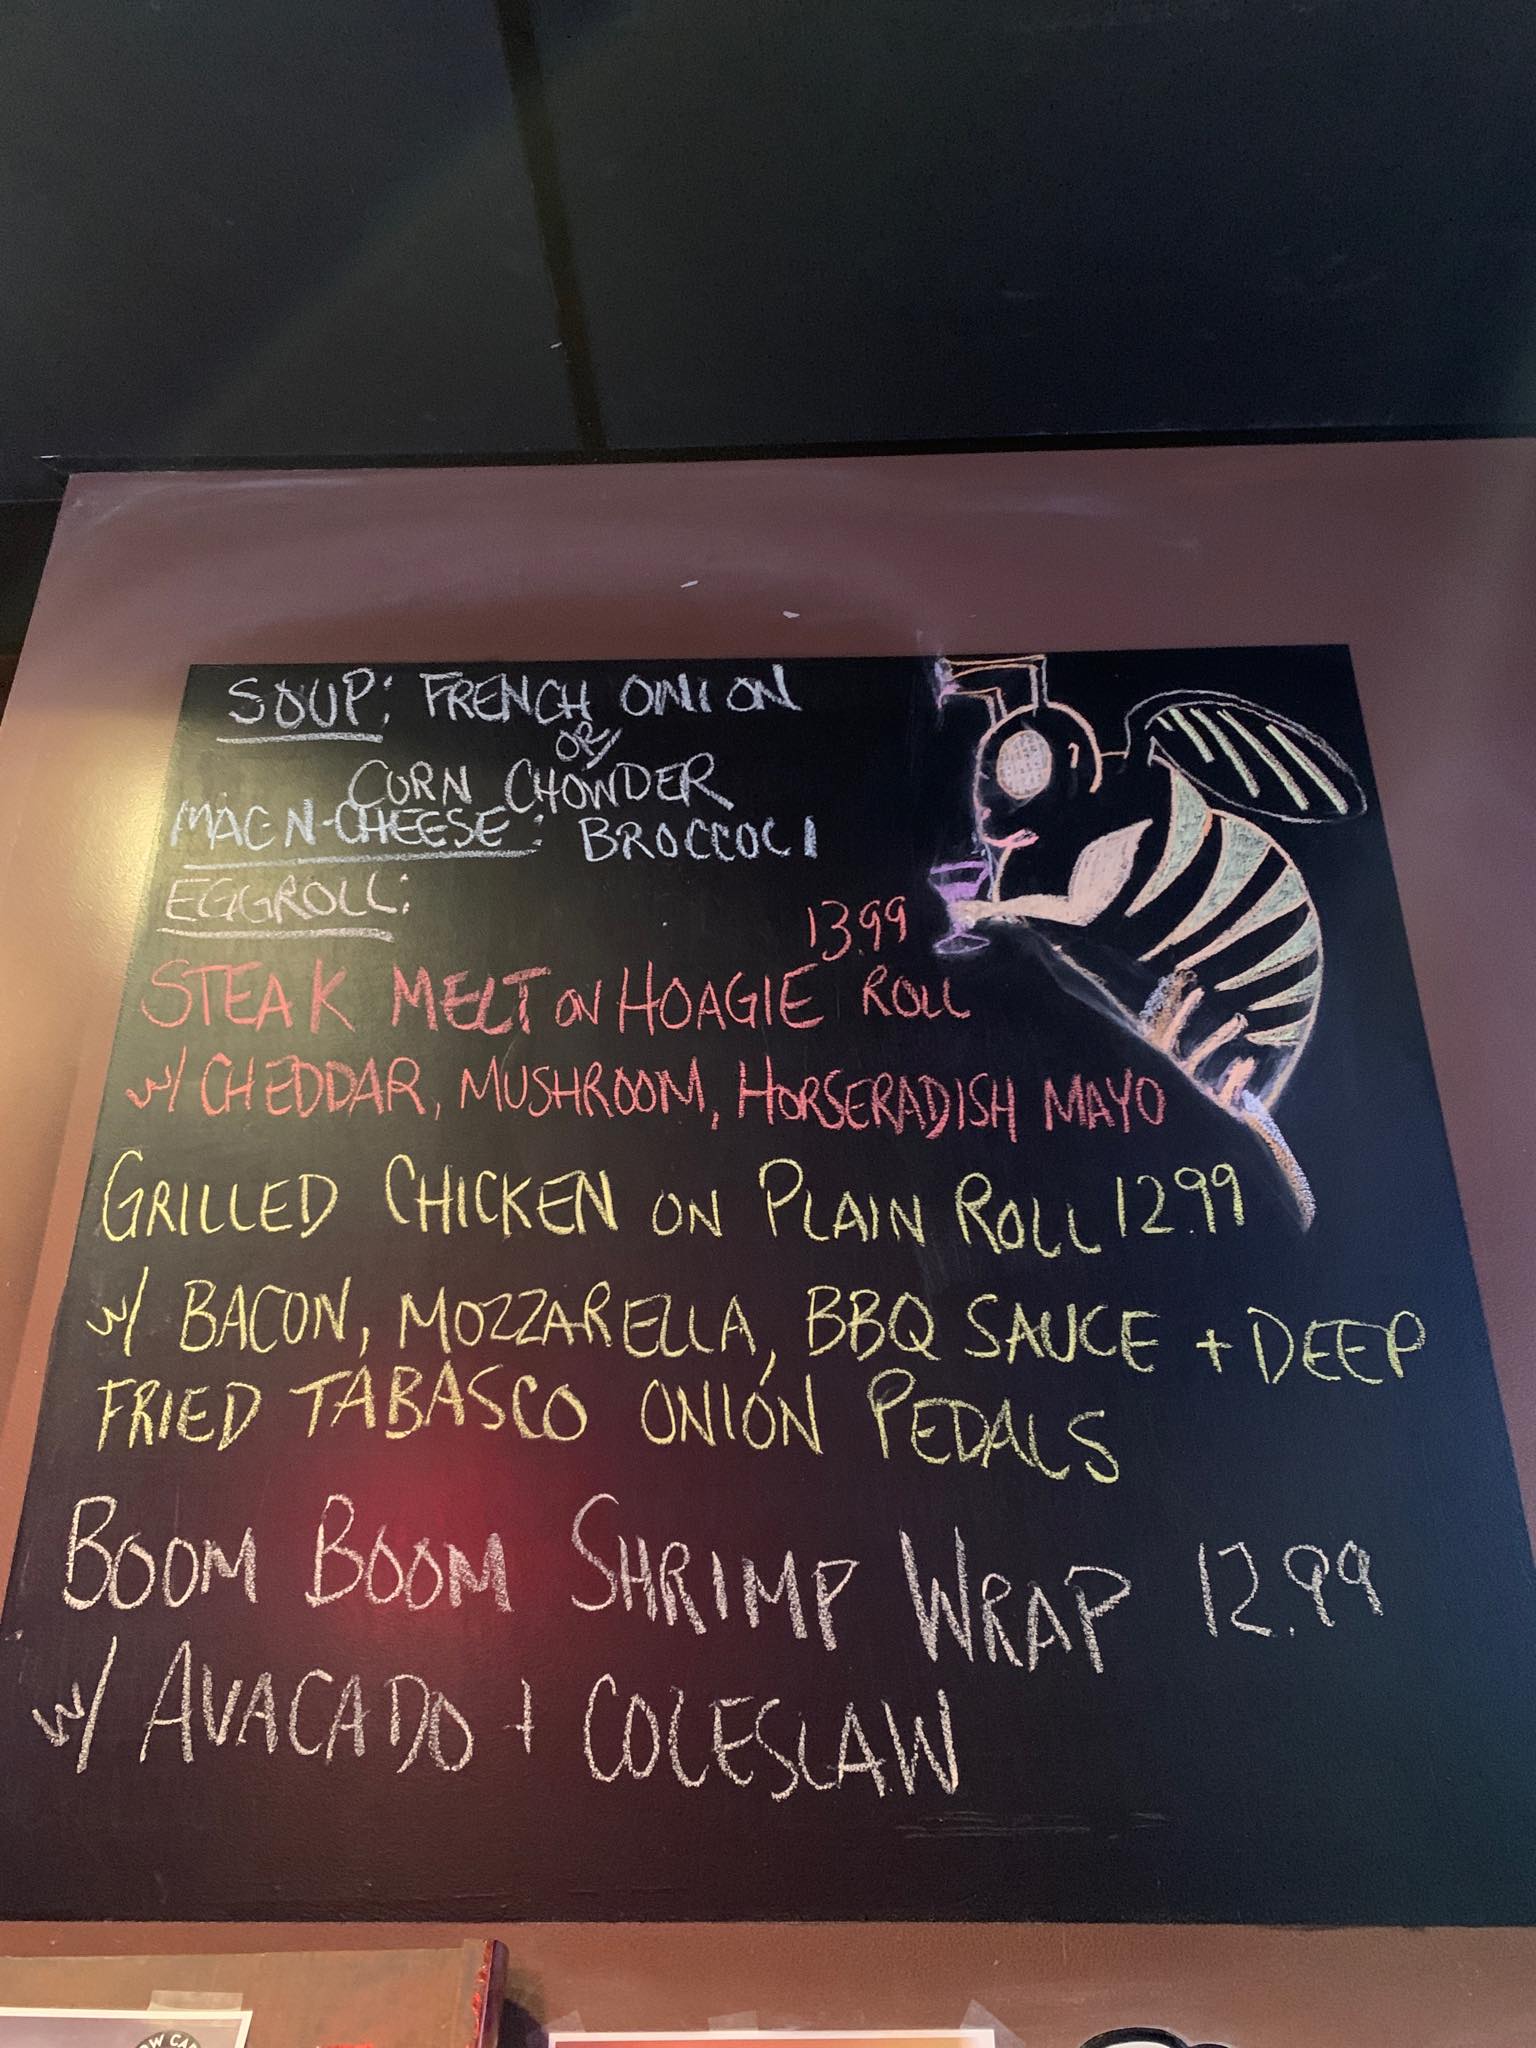 SOUP: FRENCH ONION
OR
CORN CHOWDER
MAC N-CHEESE: BROCCOLI
EGGROLL:
13.99
STEAK MELT ON HOAGIE ROLL
W/ CHEDDAR, MUSHROOM, HORSERADISH MAYO
GRILLED CHICKEN ON PLAIN ROLL 12.99
W/ BACON, MOZZARELLA, BBQ SAUCE + DEEP
FRIED TABASCO ONION PEDALS
BOOM BOOM SHRIMP WRAP 12.99
W/ AVACADO + COLESLAW